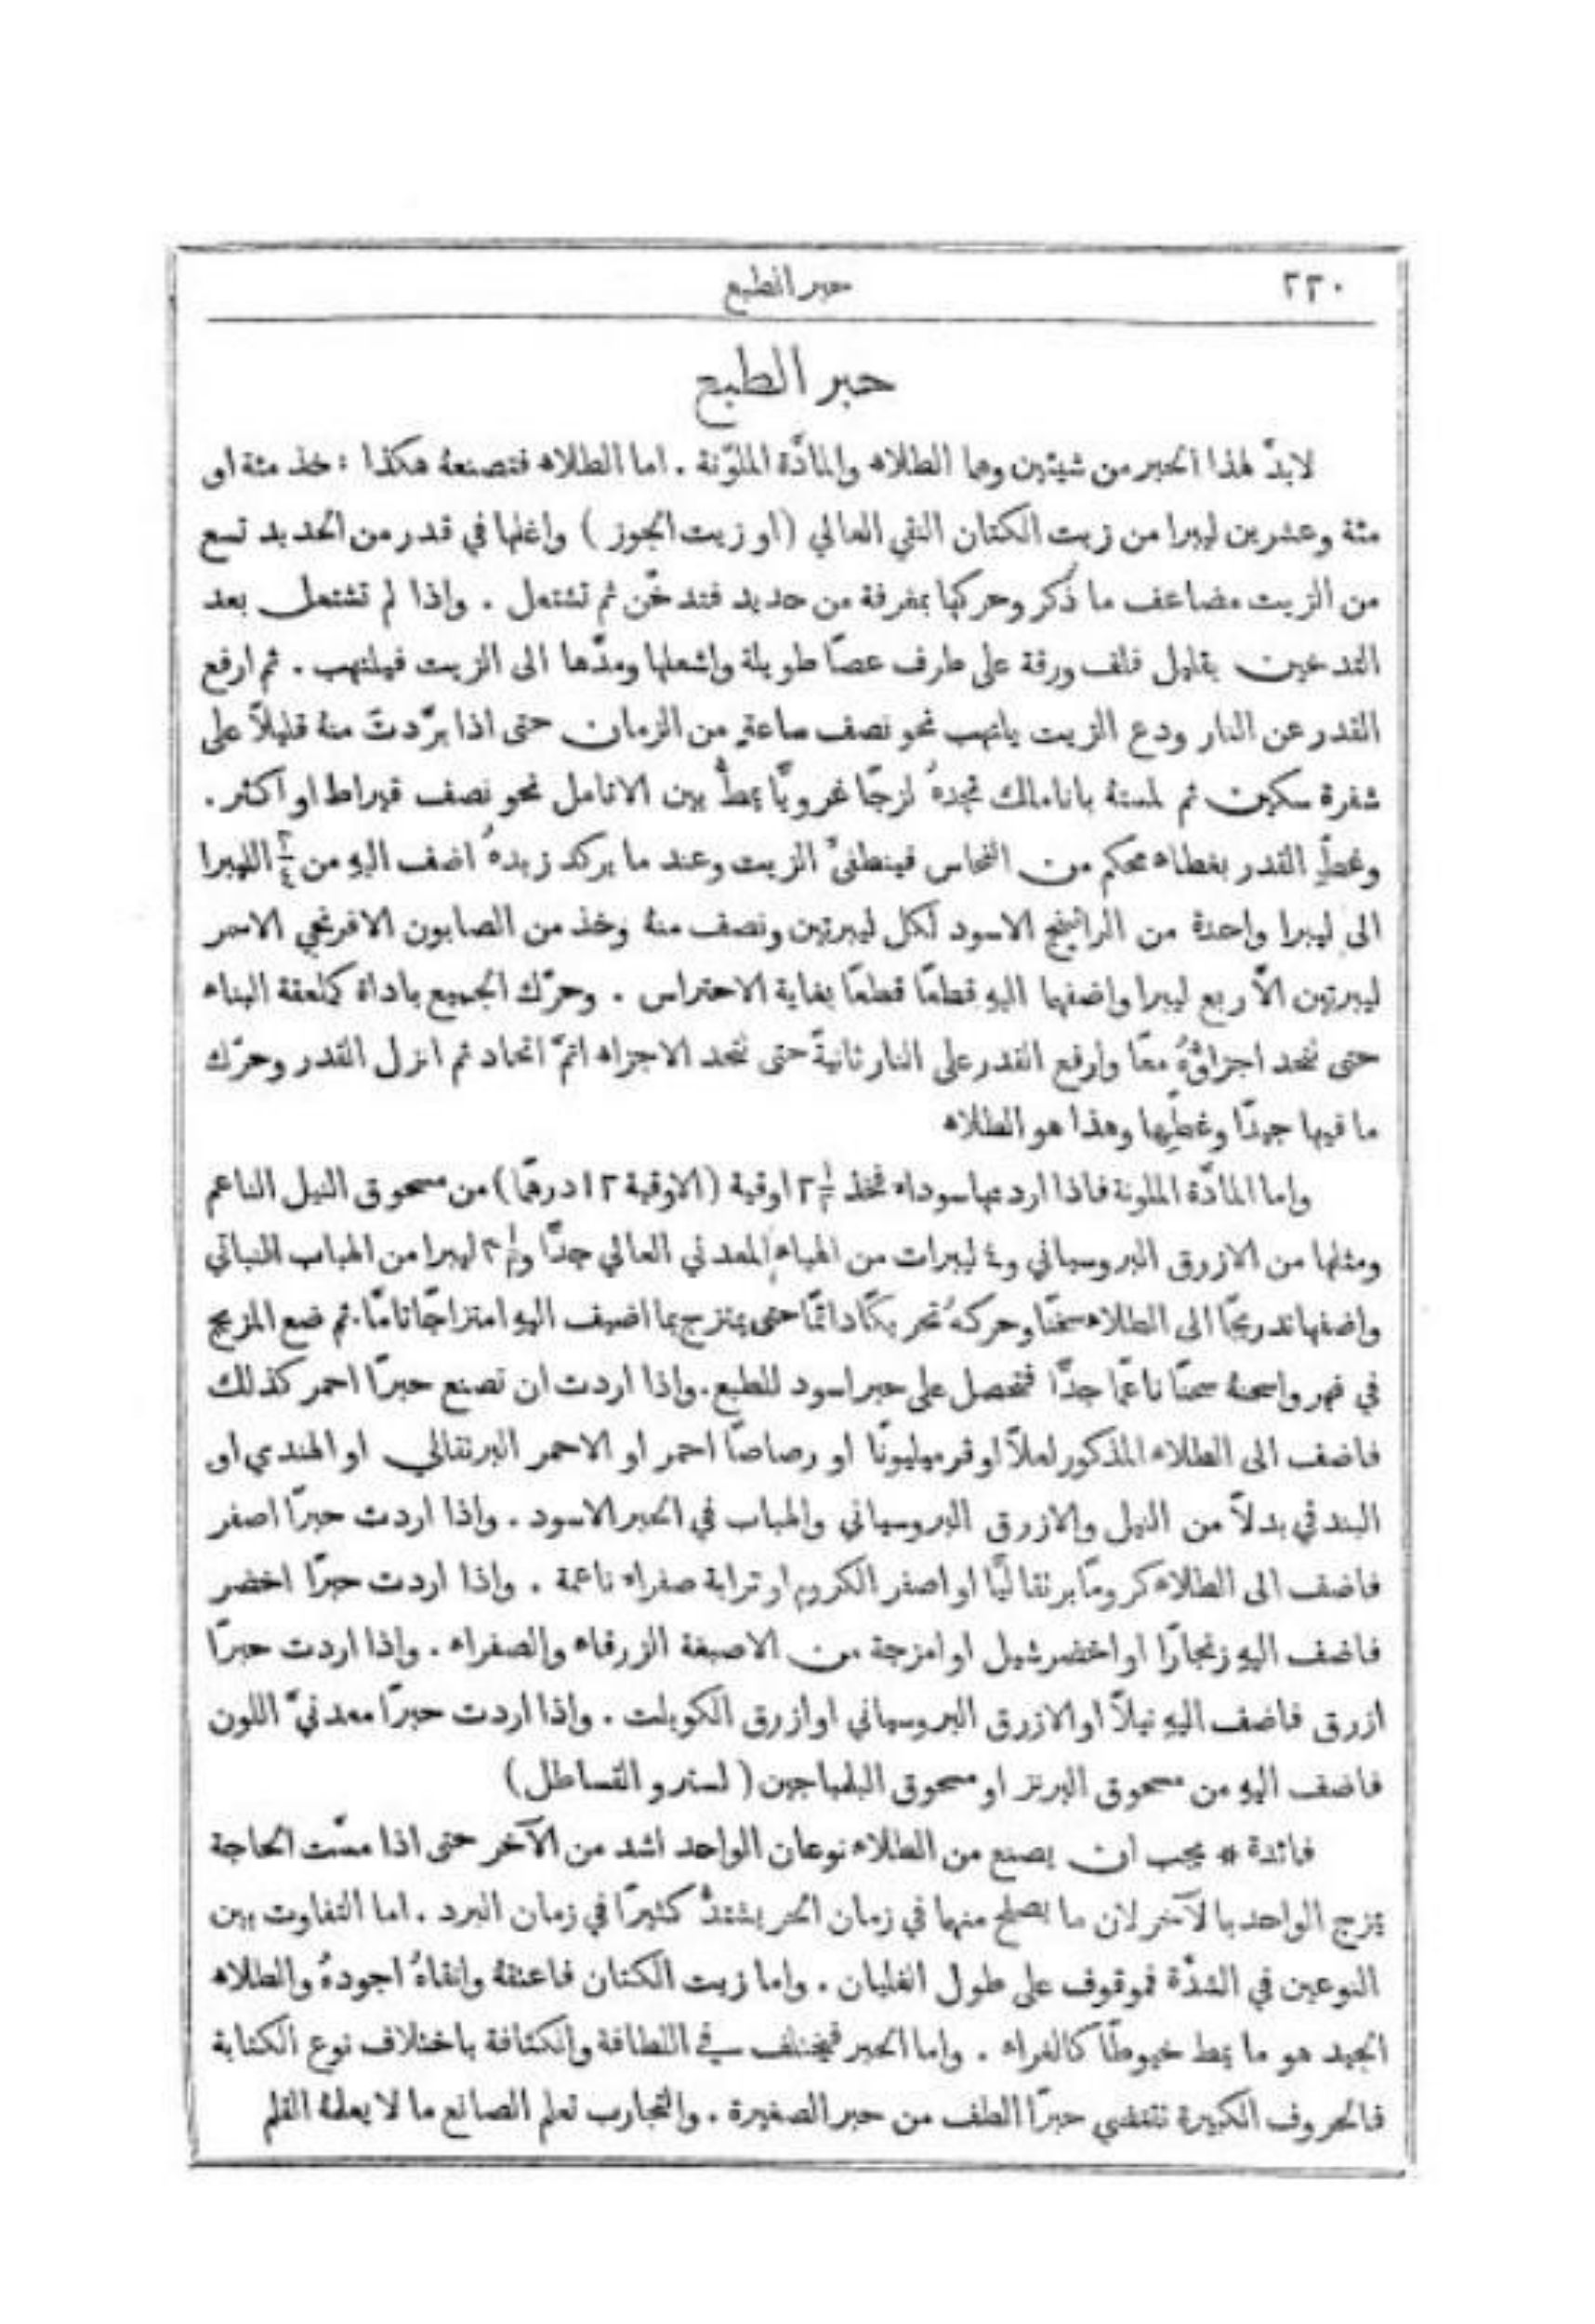 ٢٢٠
حبر الطبع
حبر الطبع
لابدَّ لهذا الحبر من شيئين وهما الطلاء والمادَّة الملوّنة . اما الطلاء فتصنعهُ هكذا : خذ مئة او
مئة وعشرين ليبرا من زيت الكتان النقي العالي (او زيت الجوز ) واغلها في قدر من الحديد تسع
من الزيت مضاعف ما ذُكر وحركها بمغرفة من حديد فتدخّن ثم تشتعل . واذا لم تشتعل بعد
التدخين بقليل فلف ورقة على طرف عصًا طويلة واشعلها ومدَّها الى الزيت فيلتهب . ثم ارفع
القدر عن النار ودع الزيت يلتهب نحو نصف ساعةٍ من الزمان حتى اذا برَّدتَ منهُ قليلاً على
شفرة سكين ثم لمستهُ باناملك تجدهُ لزجًا غرويًّا يمطُّ بين الانامل نحو نصف قيراط او اكثر .
وغطِّ القدر بغطاء محكم من النحاس فينطفئُ الزيت وعند ما يركد زبدهُ اضف اليهِ من ٣/٤ الليبرا
الى ليبرا واحدة من الراتينج الاسود لكل ليبرتين ونصف منهُ وخذ من الصابون الافرنجي الاسمر
ليبرتين الاَّ ربع ليبرا واضفها اليهِ قطعًا قطعًا بغاية الاحتراس . وحرّك الجميع باداة كملعقة البناء
حتى تتحد اجزاؤُهُ معًا وارفع القدر على النار ثانيةً حتى تتحد الاجزاء اتمَّ اتحاد ثم انزل القدر وحرّك
ما فيها جيدًا وغطِّها وهذا هو الطلاء
واما المادَّة الملونة فاذا اردتها سوداء فخذ ٢ ١/٢ اوقية (الاوقية ١٢ درهمًا) من مسحوق النيل الناعم
ومثلها من الازرق البروسياني و٤ ليبرات من الهباء المعدني العالي جدًّا و٣ ١/٢ ليبرا من الهباب النباتي
واضفها تدريجًا الى الطلاء سخنًا وحركهُ تحريكًا دائمًا حتى يمتزج بما اضيف اليهِ امتزاجًا تامًا. ثم ضع المزيج
في فهر واسحنهُ سحنًا ناعمًا جدًّا فتحصل على حبر اسود للطبع. واذا اردت ان تصنع حبرًا احمر كذلك
فاضف الى الطلاء المذكور لعلاً او قرميليونًا او رصاصًا احمر او الاحمر البرتقالي او الهندي او
البندقي بدلاً من النيل والازرق البروسياني والهباب في الحبر الاسود . واذا اردت حبرًا اصفر
فاضف الى الطلاء كرومًا برتقاليًا او اصفر الكروم او ترابة صفراء ناعمة . واذا اردت حبرًا اخضر
فاضف اليهِ زنجارًا او اخضر شيل او امزجة من الاصبغة الزرقاء والصفراء . واذا اردت حبرًا
ازرق فاضف اليهِ نيلاً او الازرق البروسياني او ازرق الكوبلت . واذا اردت حبرًا معدنيَّ اللون
فاضف اليهِ من مسحوق البرنز او مسحوق البلمباجين ( لسترو القساطل)
فائدة * يجب ان يصنع من الطلاء نوعان الواحد اشد من الآخر حتى اذا مسَّت الحاجة
يمزج الواحد بالآخر لان ما يصلح منهما في زمان الحر يشتدُّ كثيرًا في زمان البرد . اما التفاوت بين
النوعين في الشدَّة فموقوف على طول الغليان . واما زيت الكتان فاعتقهُ وانقاهُ اجودهُ والطلاء
الجيد هو ما يمط خيوطًا كالغراء . واما الحبر فيختلف في اللطافة والكثافة باختلاف نوع الكتابة
فالحروف الكبيرة تقتضي حبرًا الطف من حبر الصغيرة . والتجارب تعلم الصانع ما لا يعلمهُ القلم